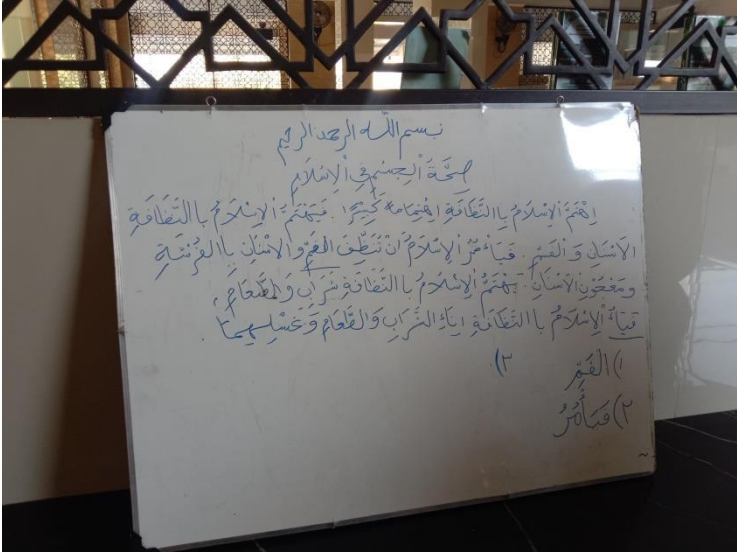 بسم الله الرحمن الرحيم
صِحَّةُ الْجِسْمِ فِي الْإِسْلَامِ
اِهْتَمَّ الْإِسْلَامُ بِاالنَّظَافَةِ اِهْتِمَامًا كَبِيْرًا. فَيَهْتَمُّ الْإِسْلَامُ بِاالنَّظَافَةِ
الْاَسْنَانِ وَ الْفَمِّ. فَيَاءْمُرُ الْإِسْلَامُ اَنْ تُنَظِّفَ الْفَمِّ وَالْاَسْنَانِ بِاالفُرْشَةِ
وَمَعْجُوْنِ الْاَسْنَانِ. يَهْتَمُّ الْإِسْلَامُ بِاالنَّظَافَةِ شَرَابِ وَالطَّعَامِ،
فَيَاءْ الْإِسْلَامُ بِاالنَّظَافَةِ اِنَاءِ الشَّرَابِ وَالطَّعَامِ وَغَسْلِهِمَا.
١) الْفَمِّ ٣).
٢) فَيَأْمُرُ